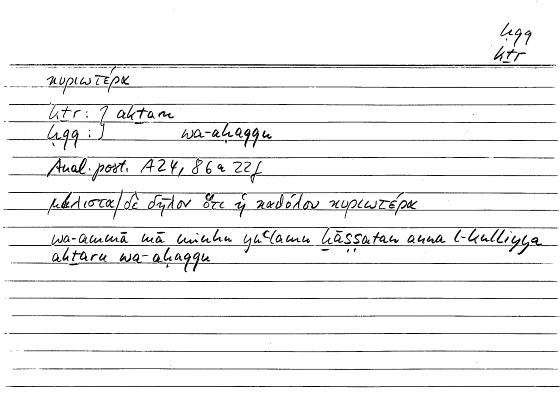 ḥqq
kṯr
κυριωτέρα
kṯr : } akṯaru
ḥqq : } wa-aḥaqqu
Anal. post. A24, 86a 22f
μάλιστα/δὲ δῆλον ὅτι ἡ καθόλου κυριωτέρα
wa-ammā mā minhu yuʿlamu ẖāṣṣatan anna l-kulliyya
akṯaru wa-aḥaqqu